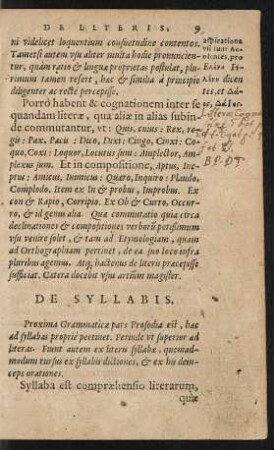 DE LITERIS. 9
ni videlicet loquentium consuetudine contentos.
Tametsi autem usu aliter multa hodie pronuncientur,
quàm ratio & linguæ proprietas postulat, plurimùm
tamen refert, hac & similia à principio
diligenter ac rectè percepisse.
Porrò habent & cognationem inter se
quandam literæ, qua aliæ in alias subinde
commutantur, vt: Quis, cuius: Rex, regis:
Pax, Pacis: Duco, Dixi: Cingo, Cinxi: Coquo,
Coxi: Loquor, Locutus sum: Amplector, Amplexus
sum. Et in compositione, Aptus, Ineptus:
Amicus, Inimicus: Quatio, Inquiro: Plaudo,
Complodo. Item ex In & probus, Improbus. Ex
con & Rapio, Corripio. Ex Ob & Curro, Occurro,
& id genus alia. Quæ commutatio quia circa
declinationes & compositiones verborū potissimum
vsu venire solet, & tam ad Etymologiam, quam
ad Orthographiam pertinet, de ea suo loco infra
pluribus agemus. Atq; hactenus de literis præcepisse
sufficiat. Cætera docebit vsus artiũm magister.
DE SYLLABIS.
Proxima Grammaticæ pars Prosodia est, hac
ad syllabas propriè pertinet. Perinde vt superior ad
literas. Fiunt autem ex literis syllabæ, quemadmodum
rursus ex syllabis dictiones, & ex his deinceps
orationes.
Syllaba est compræhensio literarum,
quæ
aspiratione